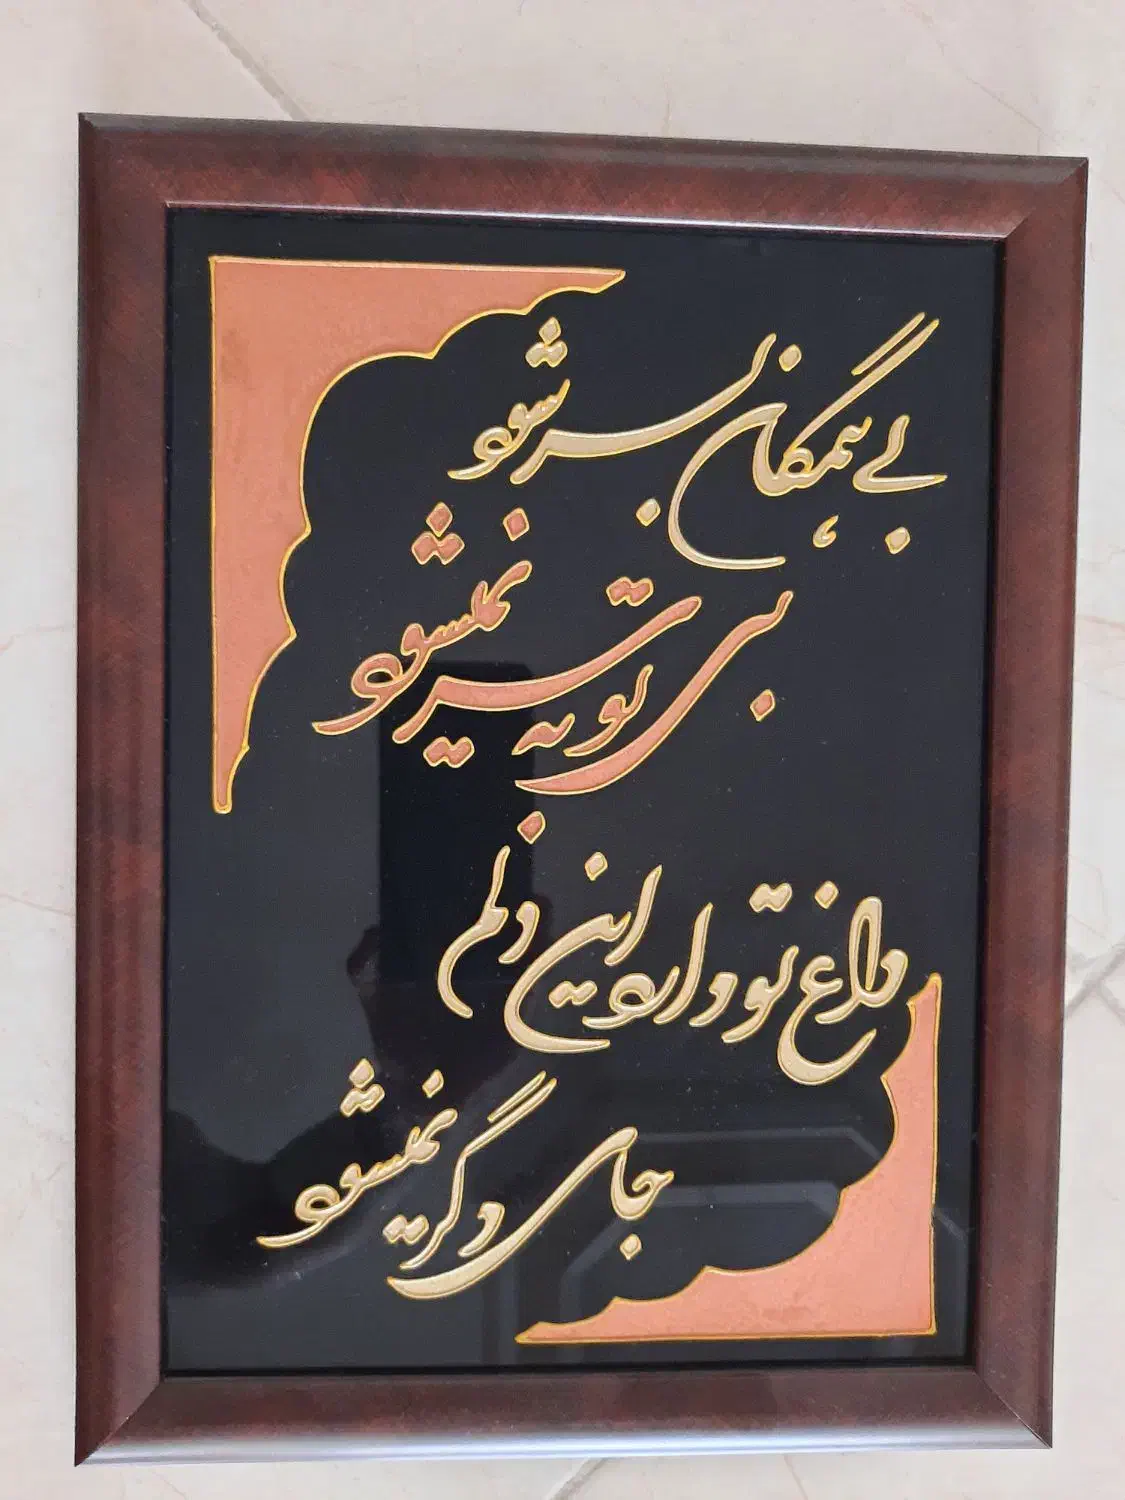 بی همگان بسر شود
بی تو به سر نمیشود
داغ تو دارد این دلم
جای دگر نمیشود